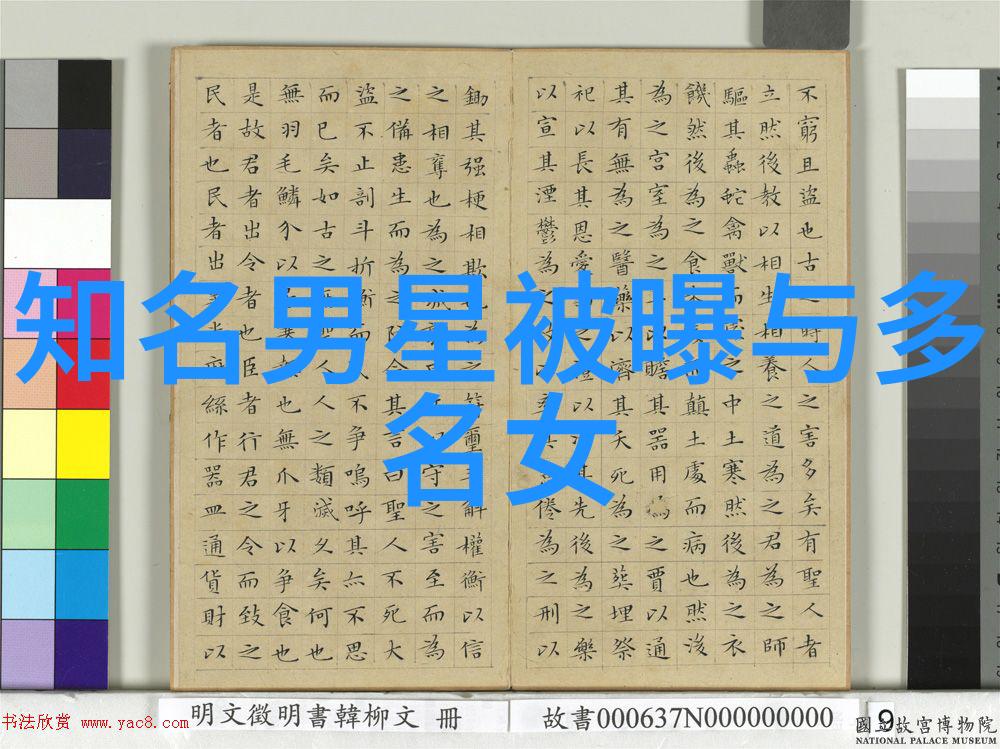 知名男星被曝与多
名女
不窮且盜也古之時人之害多矣有聖人者
立然後教以相生相養之道為之君為之師
驅其蟲蛇禽獸而處之中土寒然後為之衣
饑然後為之食木而顛土處而病也然後
為之宮室為之工以贍其器用為之賈以通
其有無為之醫藥以濟其夭死為之葬埋祭
祀以長其恩愛為之禮以其先後為之樂
以宣其湮鬱為之政以其倦為之刑以
鋤其强梗相欺也為之符璽斗斛權衡以信
之相奪也為之城郭以守之害至而為
之備患生而為之防今其言曰聖人不死大
盜不止剖斗折衡而人不争嗚呼其亦不思
而已矣如古之無聖人人之類滅久矣何也
無羽毛鱗介以居寒熱也無爪牙以争食也
是故君者出令者也臣者行君之令而致之
民者也民者出粟米麻絲作器皿通貨財以
书法欣赏 www.yac8.com
明文徵明書韓柳文 冊
故書000637N000000000
9
國立故宮博物院
NATIONAL PALACE MUSEUM